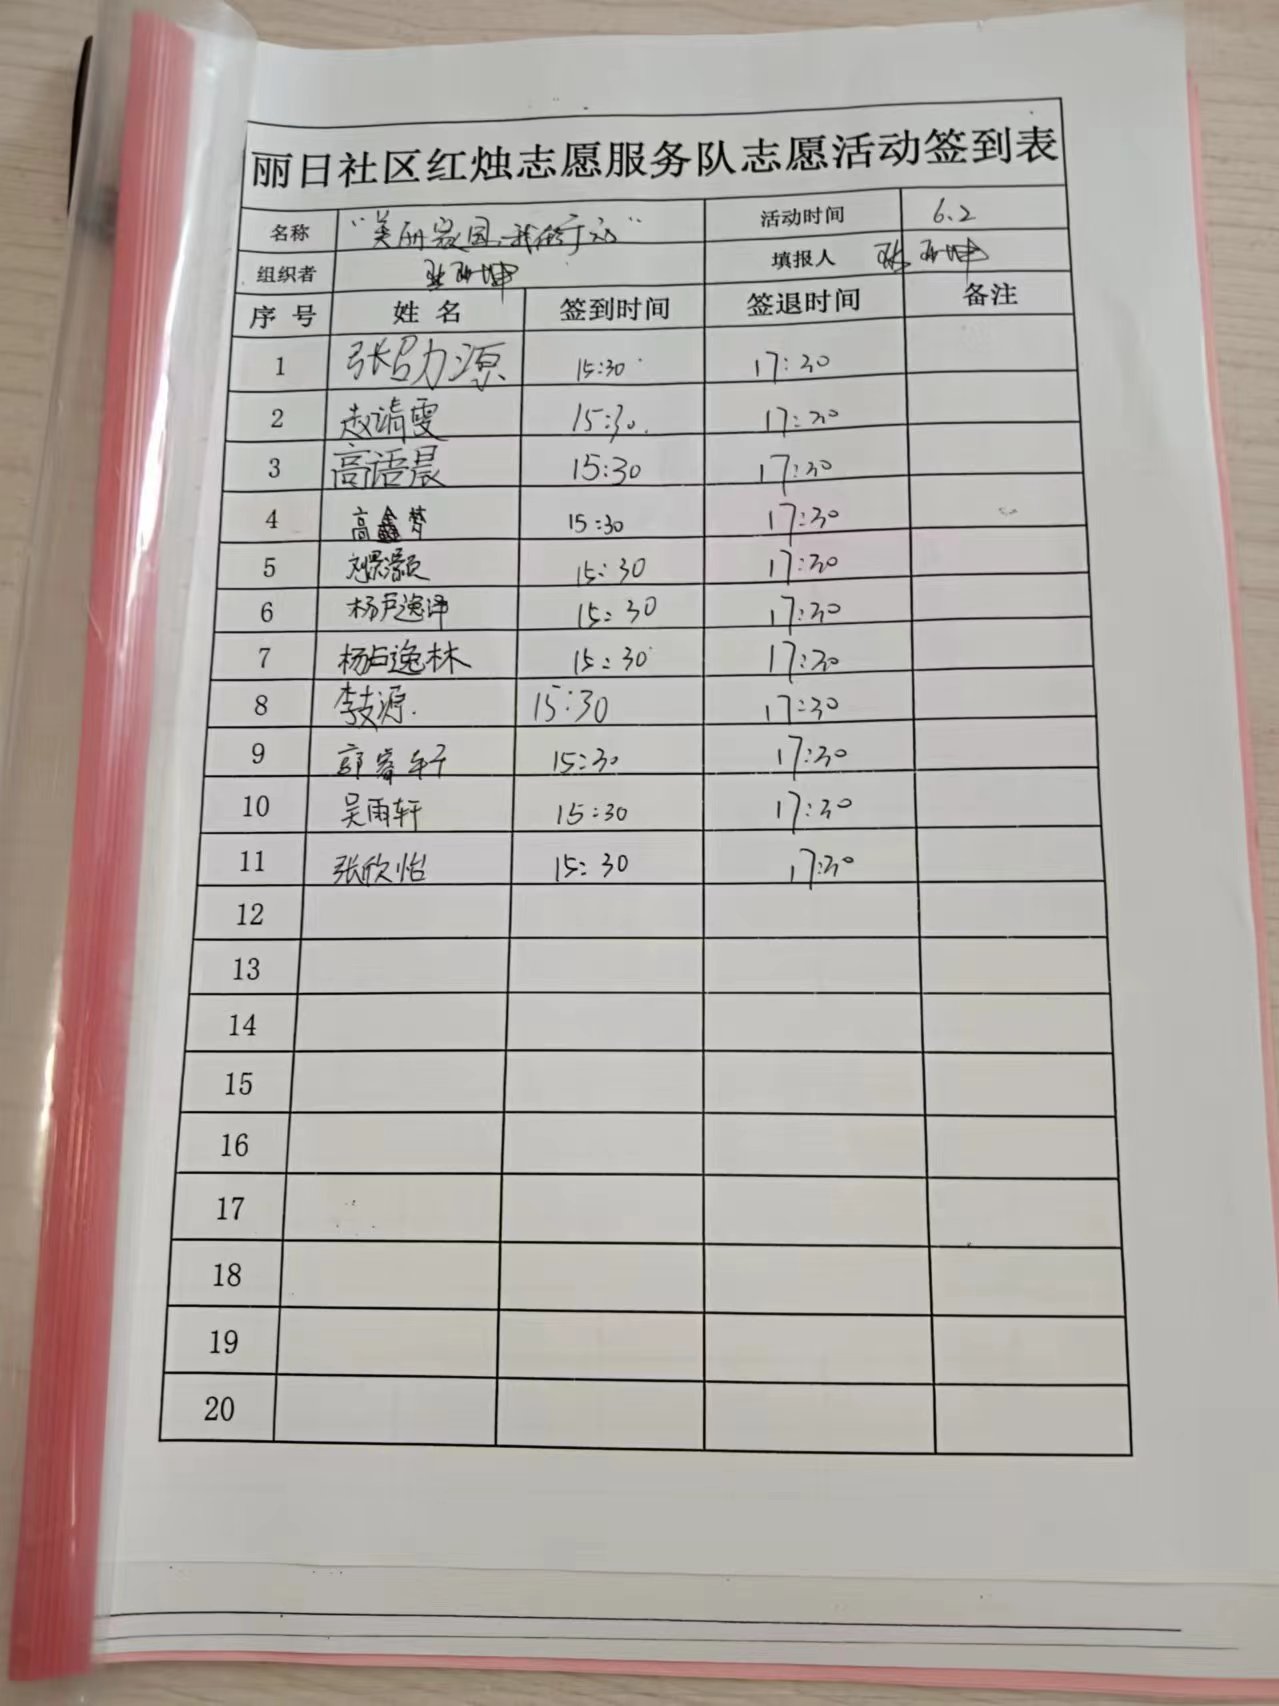 丽日社区红烛志愿服务队志愿活动签到表
名称 "美丽家园、我行动" 活动时间 6.2
组织者 填报人
序号 姓名 签到时间 签退时间 备注
1 张力源 15:30 17:30
2 赵靖雯 15:30. 17:30
3 高语晨 15:30 17:30
4 高鑫梦 15:30 17:30
5 15:30 17:30
6 杨卢逸泽 15:30 17:30
7 杨卢逸林 15:30 17:30
8 李源. 15:30 17:30
9 郭睿轩 15:30 17:30
10 吴雨轩 15:30 17:30
11 张欣怡 15:30 17:30
12
13
14
15
16
17
18
19
20